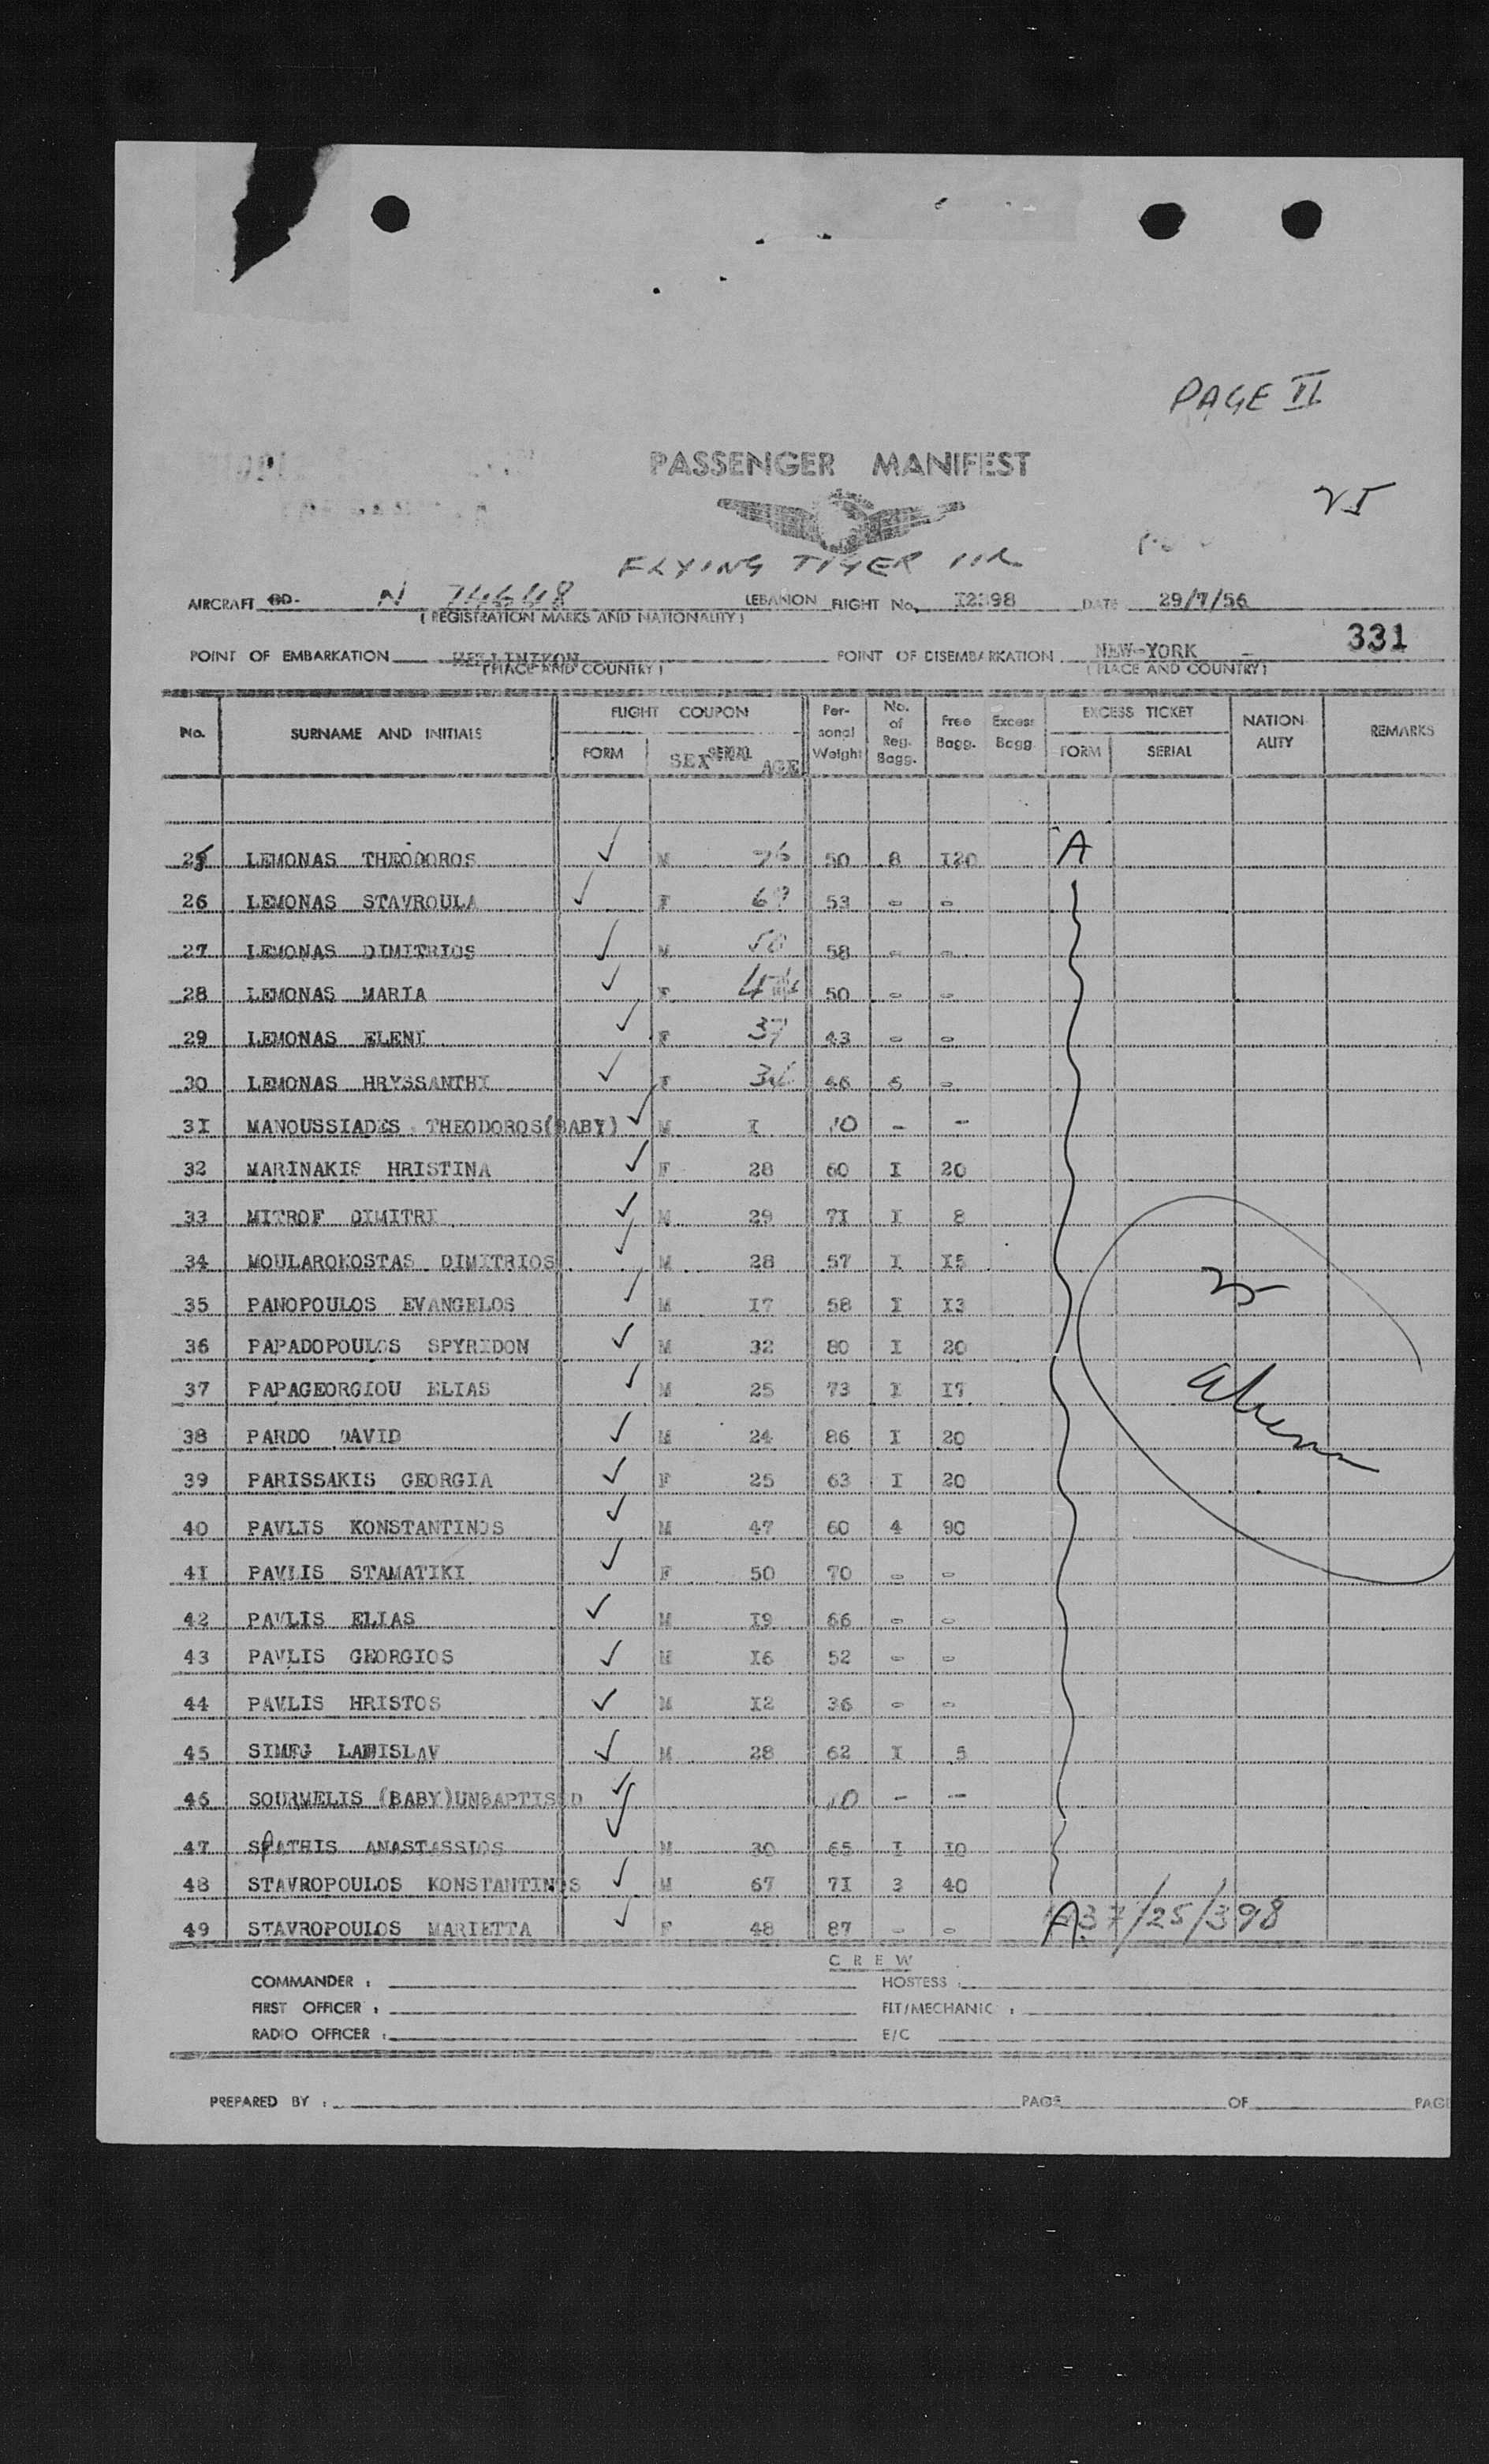 PAGE II
PASSENGER MANIFEST
25
FLYING TIGER
AIRCRAFT OD- N LEBANON FLIGHT No. DATE 29/7/56
( REGISTRATION MARKS AND NATIONALITY )
331
POINT OF EMBARKATION HELLINIKON POINT OF DISEMBARKATION NEW-YORK
( PLACE AND COUNTRY ) ( PLACE AND COUNTRY )
No. SURNAME AND INITIALS FLIGHT COUPON FORM SERIAL SEX AGE Per-sonal Weight No. of Reg. Bagg. Free Bagg. Excess Bagg. EXCESS TICKET FORM SERIAL NATION-ALITY REMARKS
25 LEMONAS THEODOROS ✓ M 50 8 I20 A
26 LEMONAS STAVROULA ✓ F 69 53 - -
27 LEMONAS DIMITRIOS ✓ M 58 - -
28 LEMONAS MARIA ✓ F 50 - -
29 LEMONAS ELENI ✓ F 37 43 - -
30 LEMONAS HRYSSANTHY ✓ F 46 -
3I MANOUSSIADES THEODOROS(BABY) ✓ M I 10 - -
32 MARINAKIS HRISTINA ✓ F 28 60 I 20
33 MITROF DIMITRI ✓ M 29 7I I 8
34 MOULAROKOSTAS DIMITRIOS ✓ M 28 57 I I5
35 PANOPOULOS EVANGELOS ✓ M I7 58 I I3
36 PAPADOPOULOS SPYRIDON ✓ M 32 80 I 20
37 PAPAGEORGIOU ELIAS ✓ M 25 73 I I7
38 PARDO DAVID ✓ M 24 86 I 20
39 PARISSAKIS GEORGIA ✓ F 25 63 I 20
40 PAVLIS KONSTANTINOS ✓ M 47 60 4 90
4I PAVLIS STAMATIKI ✓ F 50 70 - -
42 PAVLIS ELIAS ✓ M I9 66 - -
43 PAVLIS GEORGIOS ✓ M I6 52 - -
44 PAVLIS HRISTOS ✓ M I2 36 - -
45 LADISLAV ✓ M 28 62 I 5
46 SOURMELIS (BABY)UNBAPTISED ✓ 10 - -
47 SPATHIS ANASTASSIOS ✓ M 30 65 I I0
48 STAVROPOULOS KONSTANTINOS ✓ M 67 7I 3 40
49 STAVROPOULOS MARIETTA ✓ F 48 87 - - A 37/25/398
25
C R E W
COMMANDER : HOSTESS :
FIRST OFFICER : FLT/MECHANIC :
RADIO OFFICER : E/C
PREPARED BY : PAGE OF PAGE